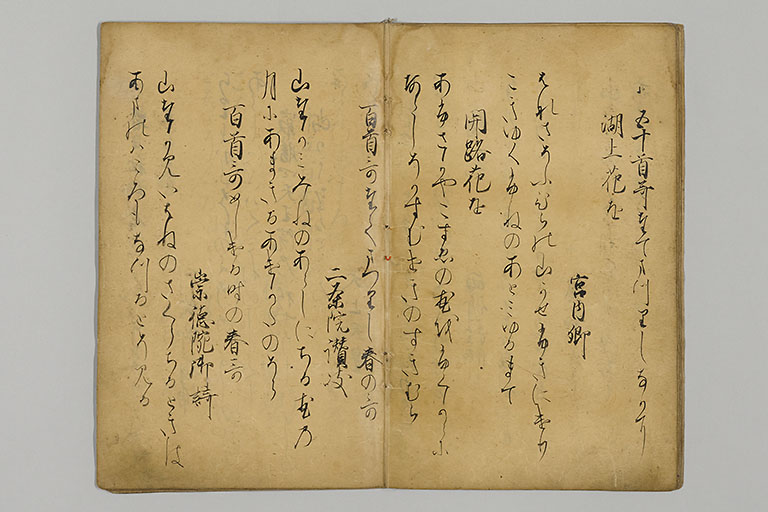 五十首哥たてまつりしなかに
湖上花を
宮内卿
はなさそふひらの山かせふきにけり
こきゆくふねのあとみゆるまて
関路花を
あふさかやこすゑの花をふくからに
あらしそかすむせきのすきむら
百首哥たてまつりし春の哥
二条院讃岐
山たかみみねのあらしにちる花の
月にあまきるあけかたのそら
百首哥めしける時の春哥
崇徳院御詩
山たかみいはねのさくらちるときは
あまのはころもなつるとそみる